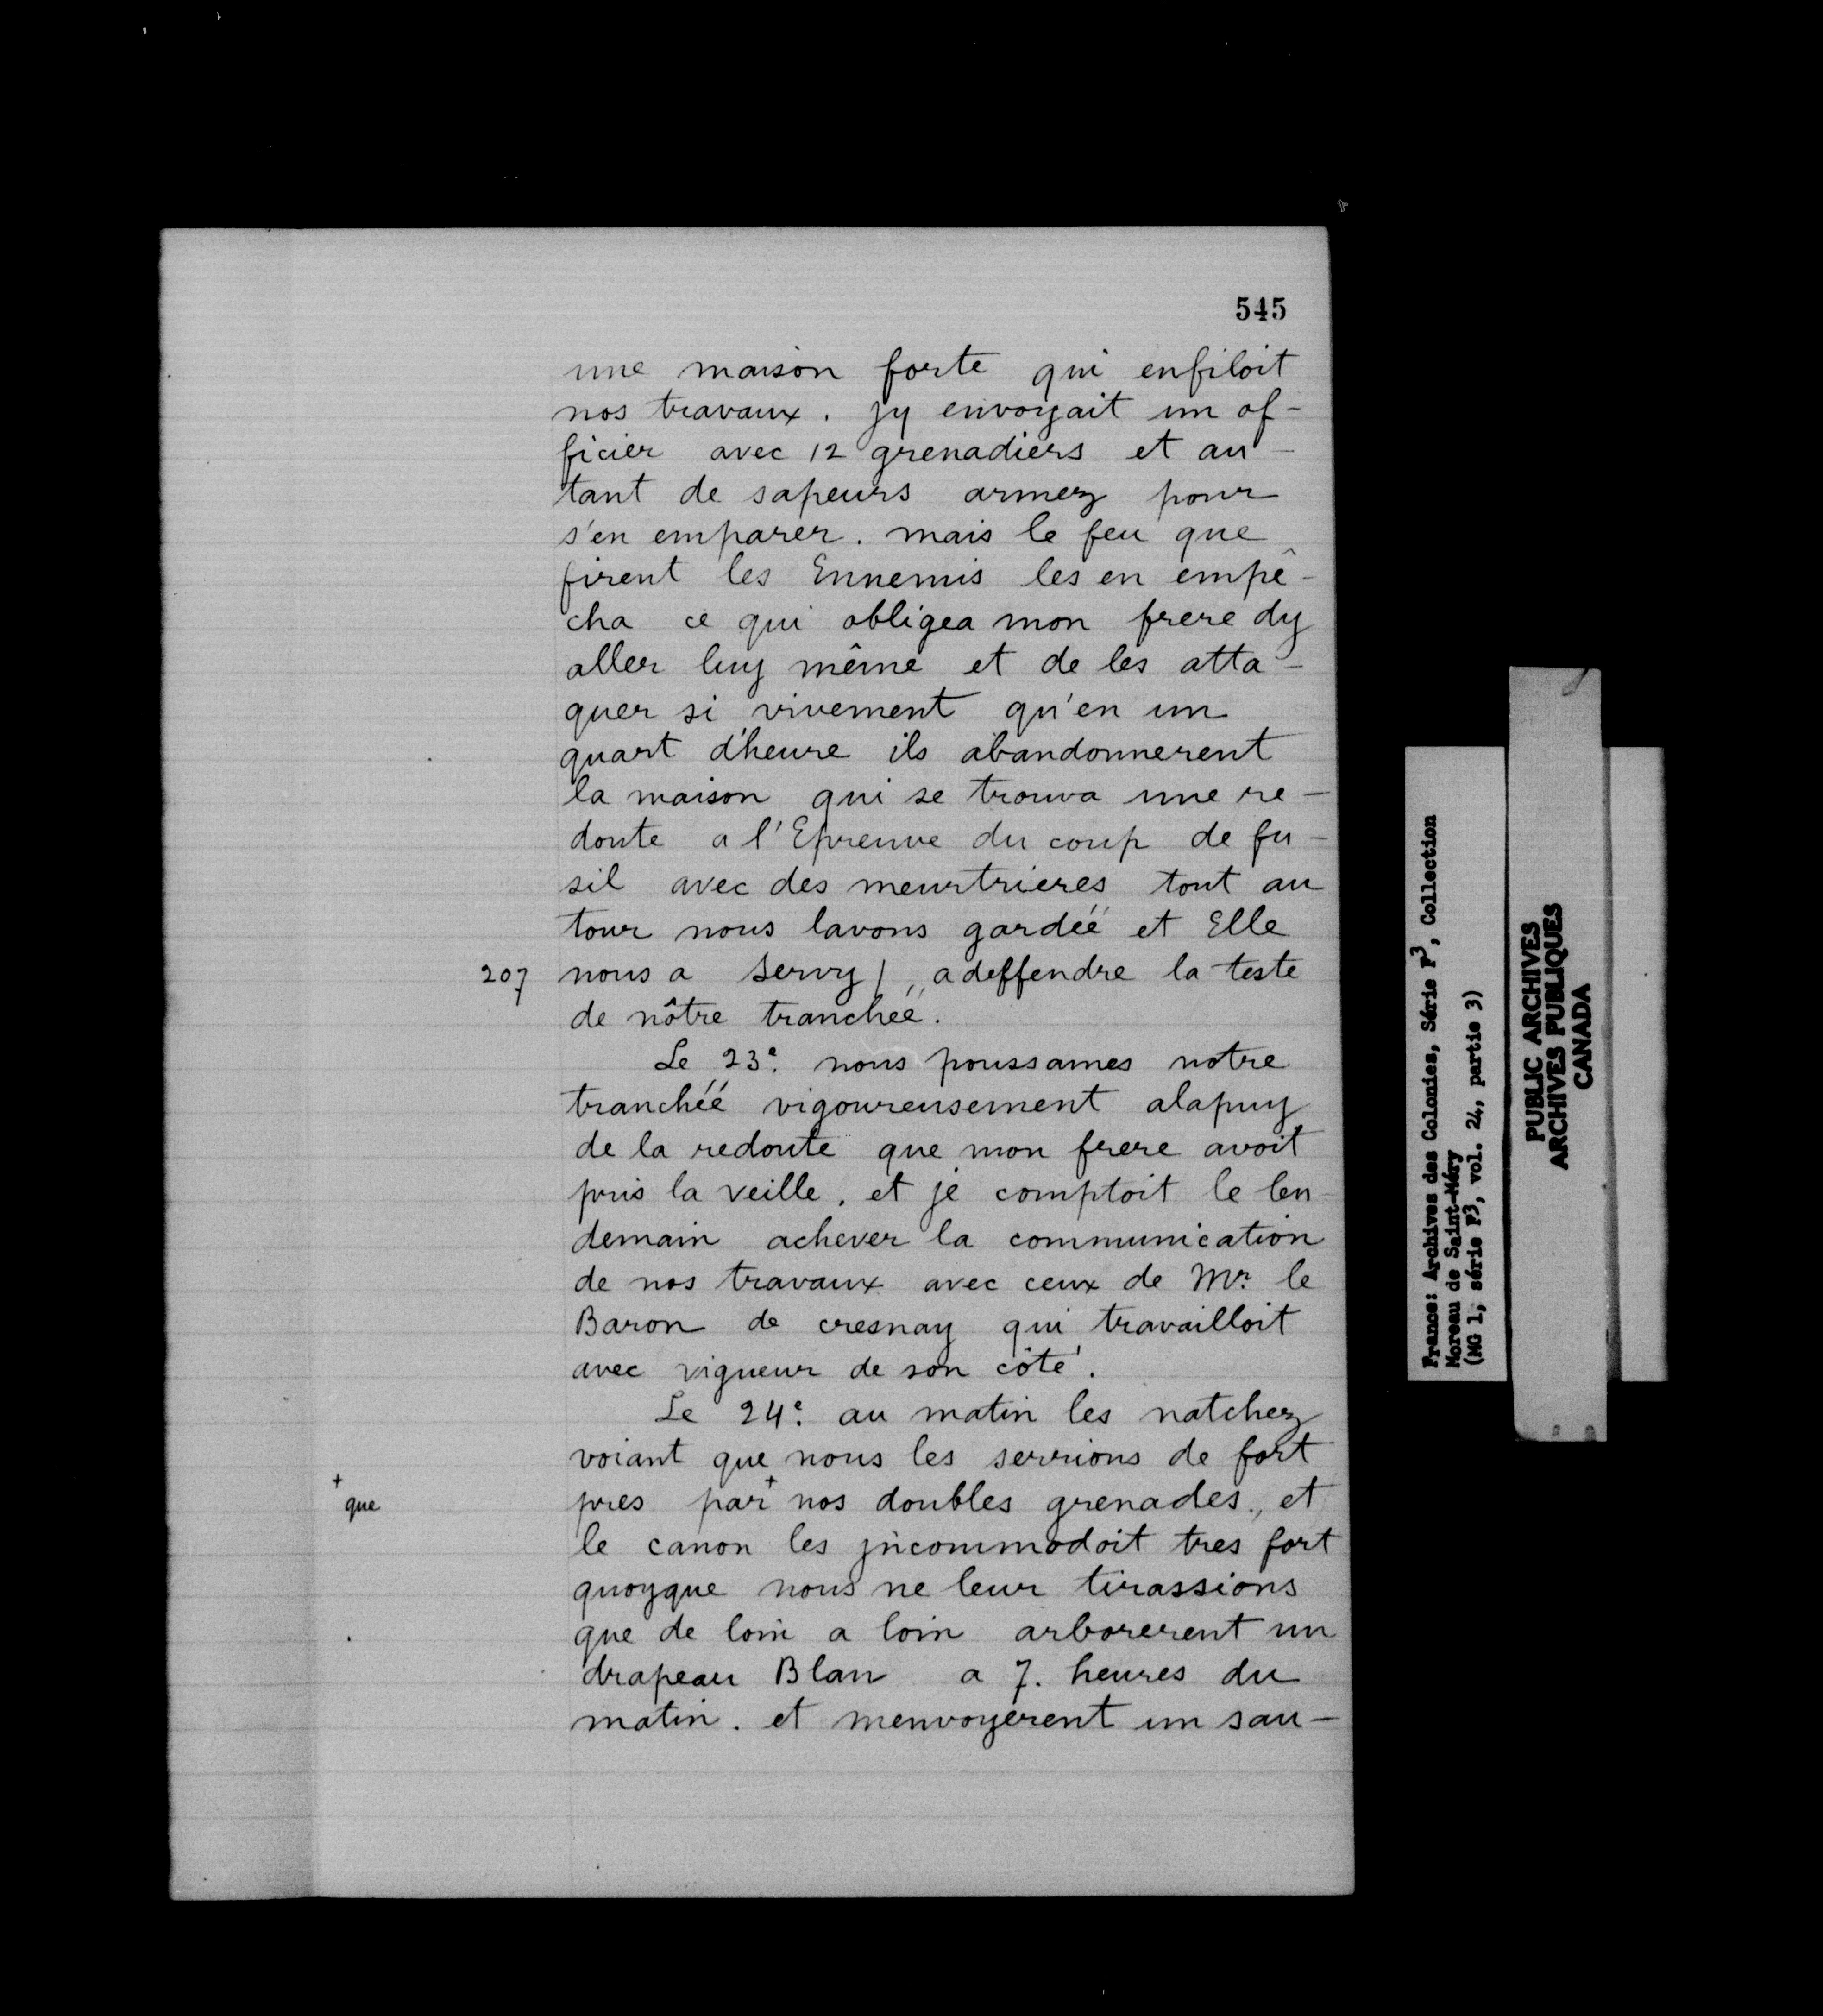 545
une maison forte qui enfiloit
nos travaux. jy envoyait un of-
ficier avec 12 grenadiers et au-
tant de sapeurs armez pour
s'en emparer. mais le feu que
firent les Ennemis les en empê-
cha ce qui obligea mon frere dy
aller luy même et de les atta-
quer si vivement qu'en un
quart d'heure ils abandonnerent
la maison qui se trouva une re-
doute a l'Epreuve du coup de fu-
sil avec des meurtrieres tout au
tour nous lavons gardéé et Elle
207 nous a servy / ,, a deffendre la teste
de nôtre tranchéé.
Le 23e. nous poussames notre
tranchéé vigoureusement alapuy
de la redoute que mon frere avoit
pris la veille. et je comptoit le len-
demain achever la communication
de nos travaux avec ceux de Mr. le
Baron de cresnay qui travailloit
avec vigueur de son côté.
Le 24e. au matin les natchez
voiant que nous les serrions de fort
+ que
pres par + nos doubles grenades., et
le canon les jncommodoit tres fort
quoyque nous ne leur tirassions
que de loin a loin arborerent un
drapeau Blan a 7. heures du
matin. et menvoyerent un sau-
France: Archives des Colonies, Série F3, Collection
Moreau de Saint-Méry
(MG 1, série F3, vol. 24, partie 3)
PUBLIC ARCHIVES
ARCHIVES PUBLIQUES
CANADA